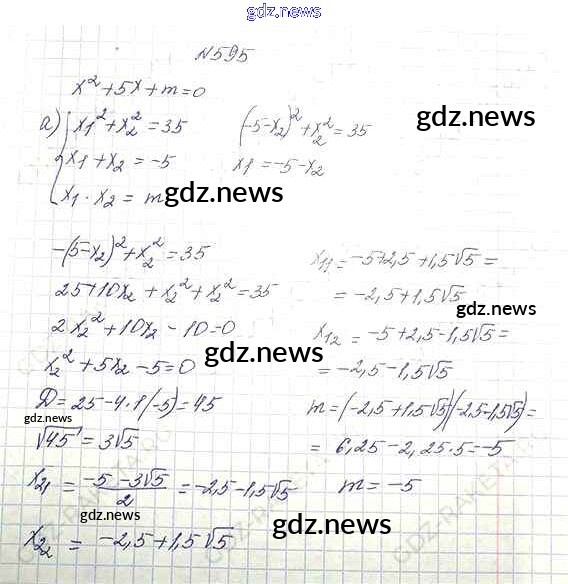 gdz.news
N595
x² + 5x + m = 0
а) { x₁² + x₂² = 35
x₁ + x₂ = -5
x₁ · x₂ = m
(-5-x₂)² + x₂² = 35
x₁ = -5-x₂
gdz.news
gdz.news
-(5-x₂)² + x₂² = 35
25+10x₂ + x₂² + x₂² = 35
2x₂² + 10x₂ - 10 = 0
gdz.news
x₂² + 5x₂ - 5 = 0
Д = 25-4·1(-5) = 45
gdz.news
√45 = 3√5
x₂₁ = (-5-3√5)/2 = -2,5-1,5√5
gdz.news
x₂₂ = -2,5+1,5√5
x₁₁ = -5+2,5+1,5√5 =
= -2,5+1,5√5
gdz.news
x₁₂ = -5+2,5-1,5√5 =
= -2,5-1,5√5
m = (-2,5+1,5√5)(-2,5-1,5√5) =
= 6,25-2,25·5 = -5
m = -5
gdz.news